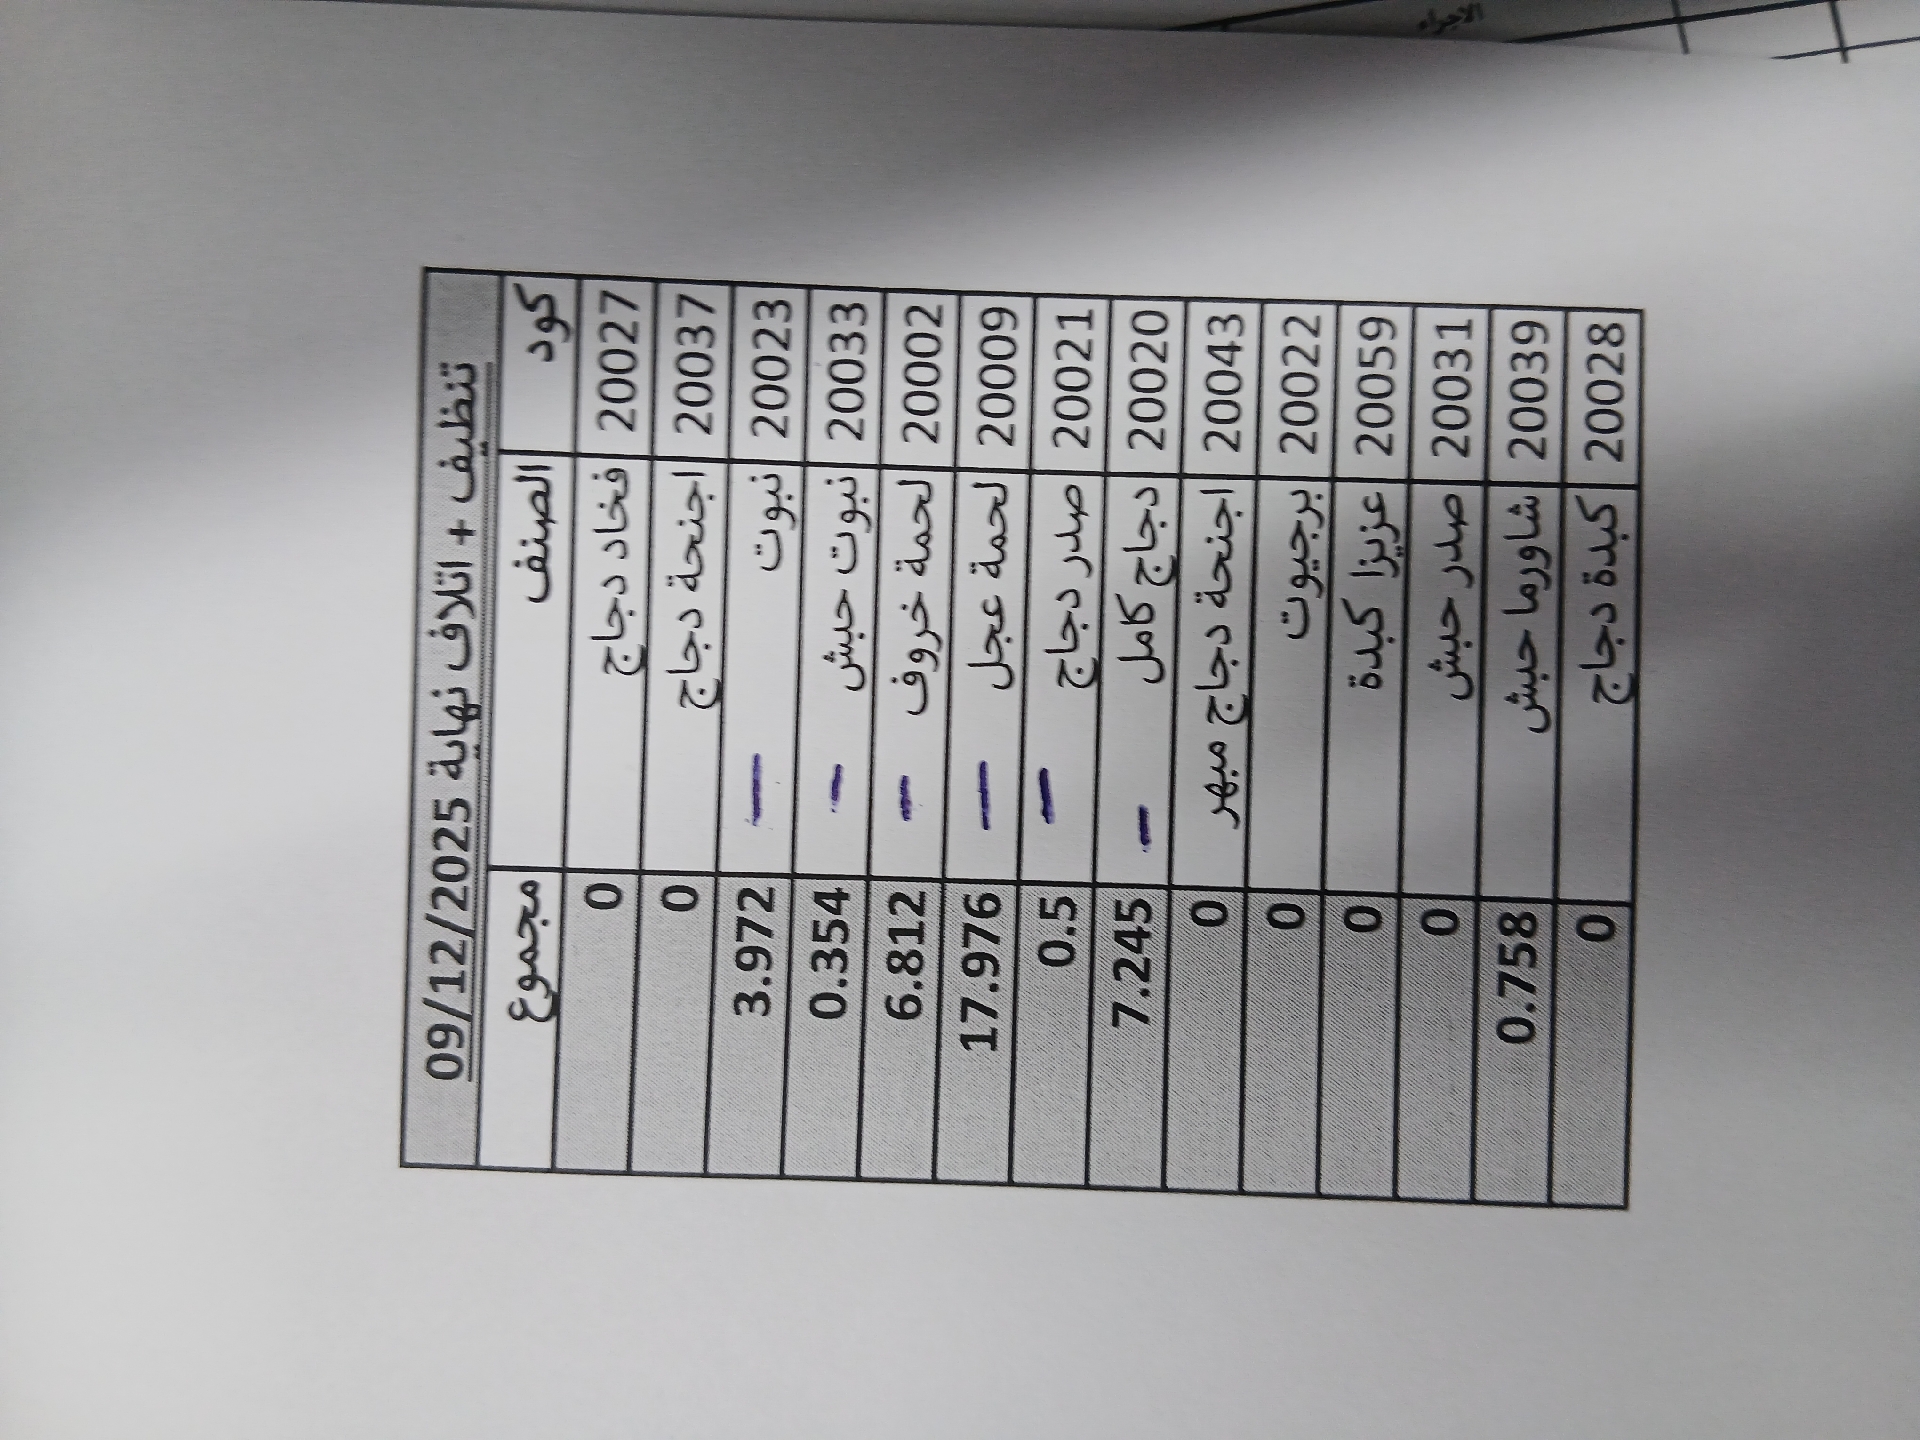 تنظيف + اتلاف نهاية 09/12/2025
كود الصنف مجموع
20027 فخاد دجاج 0
20037 اجنحة دجاج 0
20023 نبوت 3.972
20033 نبوت حبش 0.354
20002 لحمة خروف 6.812
20009 لحمة عجل 17.976
20021 صدر دجاج 0.5
20020 دجاج كامل 7.245
20043 اجنحة دجاج مبهر 0
20022 برجيوت 0
20059 عزيزا كبدة 0
20031 صدر حبش 0
20039 شاورما حبش 0.758
20028 كبدة دجاج 0
الاجراء